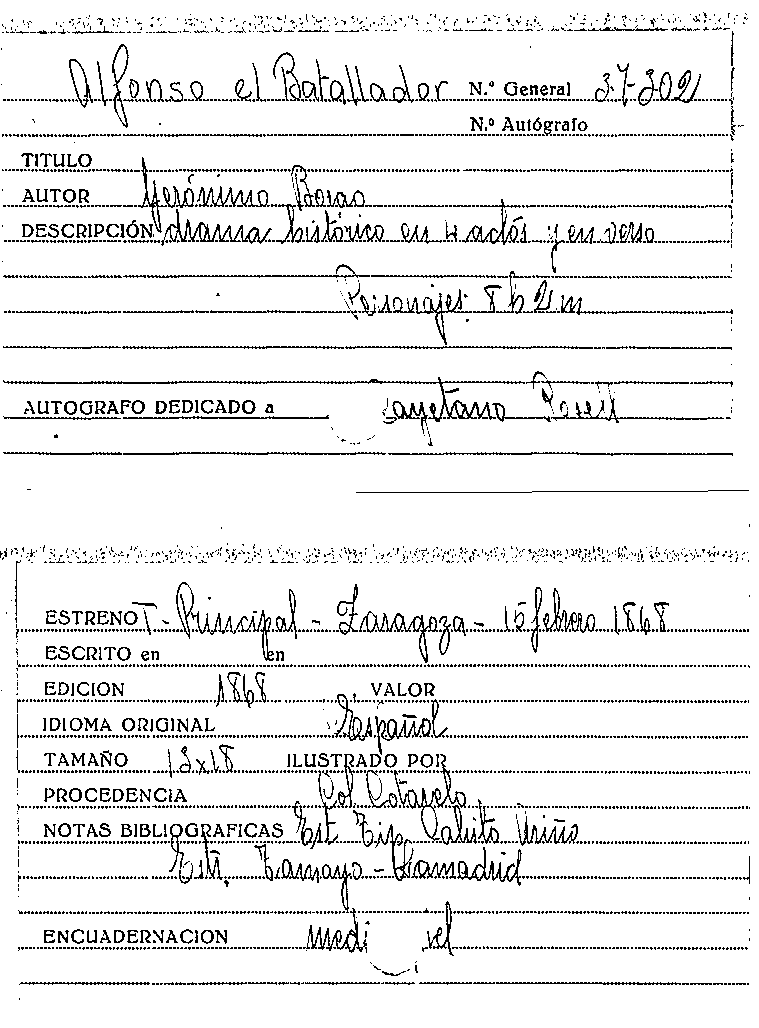 Alfonso el Batallador N.º General 37-302
N.º Autógrafo
TITULO
AUTOR Gerónimo Borao
DESCRIPCIÓN drama histórico en 4 actos y en verso
Personajes: 8 h 2 m
AUTOGRAFO DEDICADO a Cayetano Rosell
ESTRENO T. Principal - Zaragoza - 15 febrero 1868
ESCRITO en en
EDICION 1868 VALOR
IDIOMA ORIGINAL Español
TAMAÑO 13x18 ILUSTRADO POR
PROCEDENCIA Col. Cotarelo
NOTAS BIBLIOGRAFICAS Est. Tip. Calisto Ariño
Estr. Tamayo - Lamadrid
ENCUADERNACION